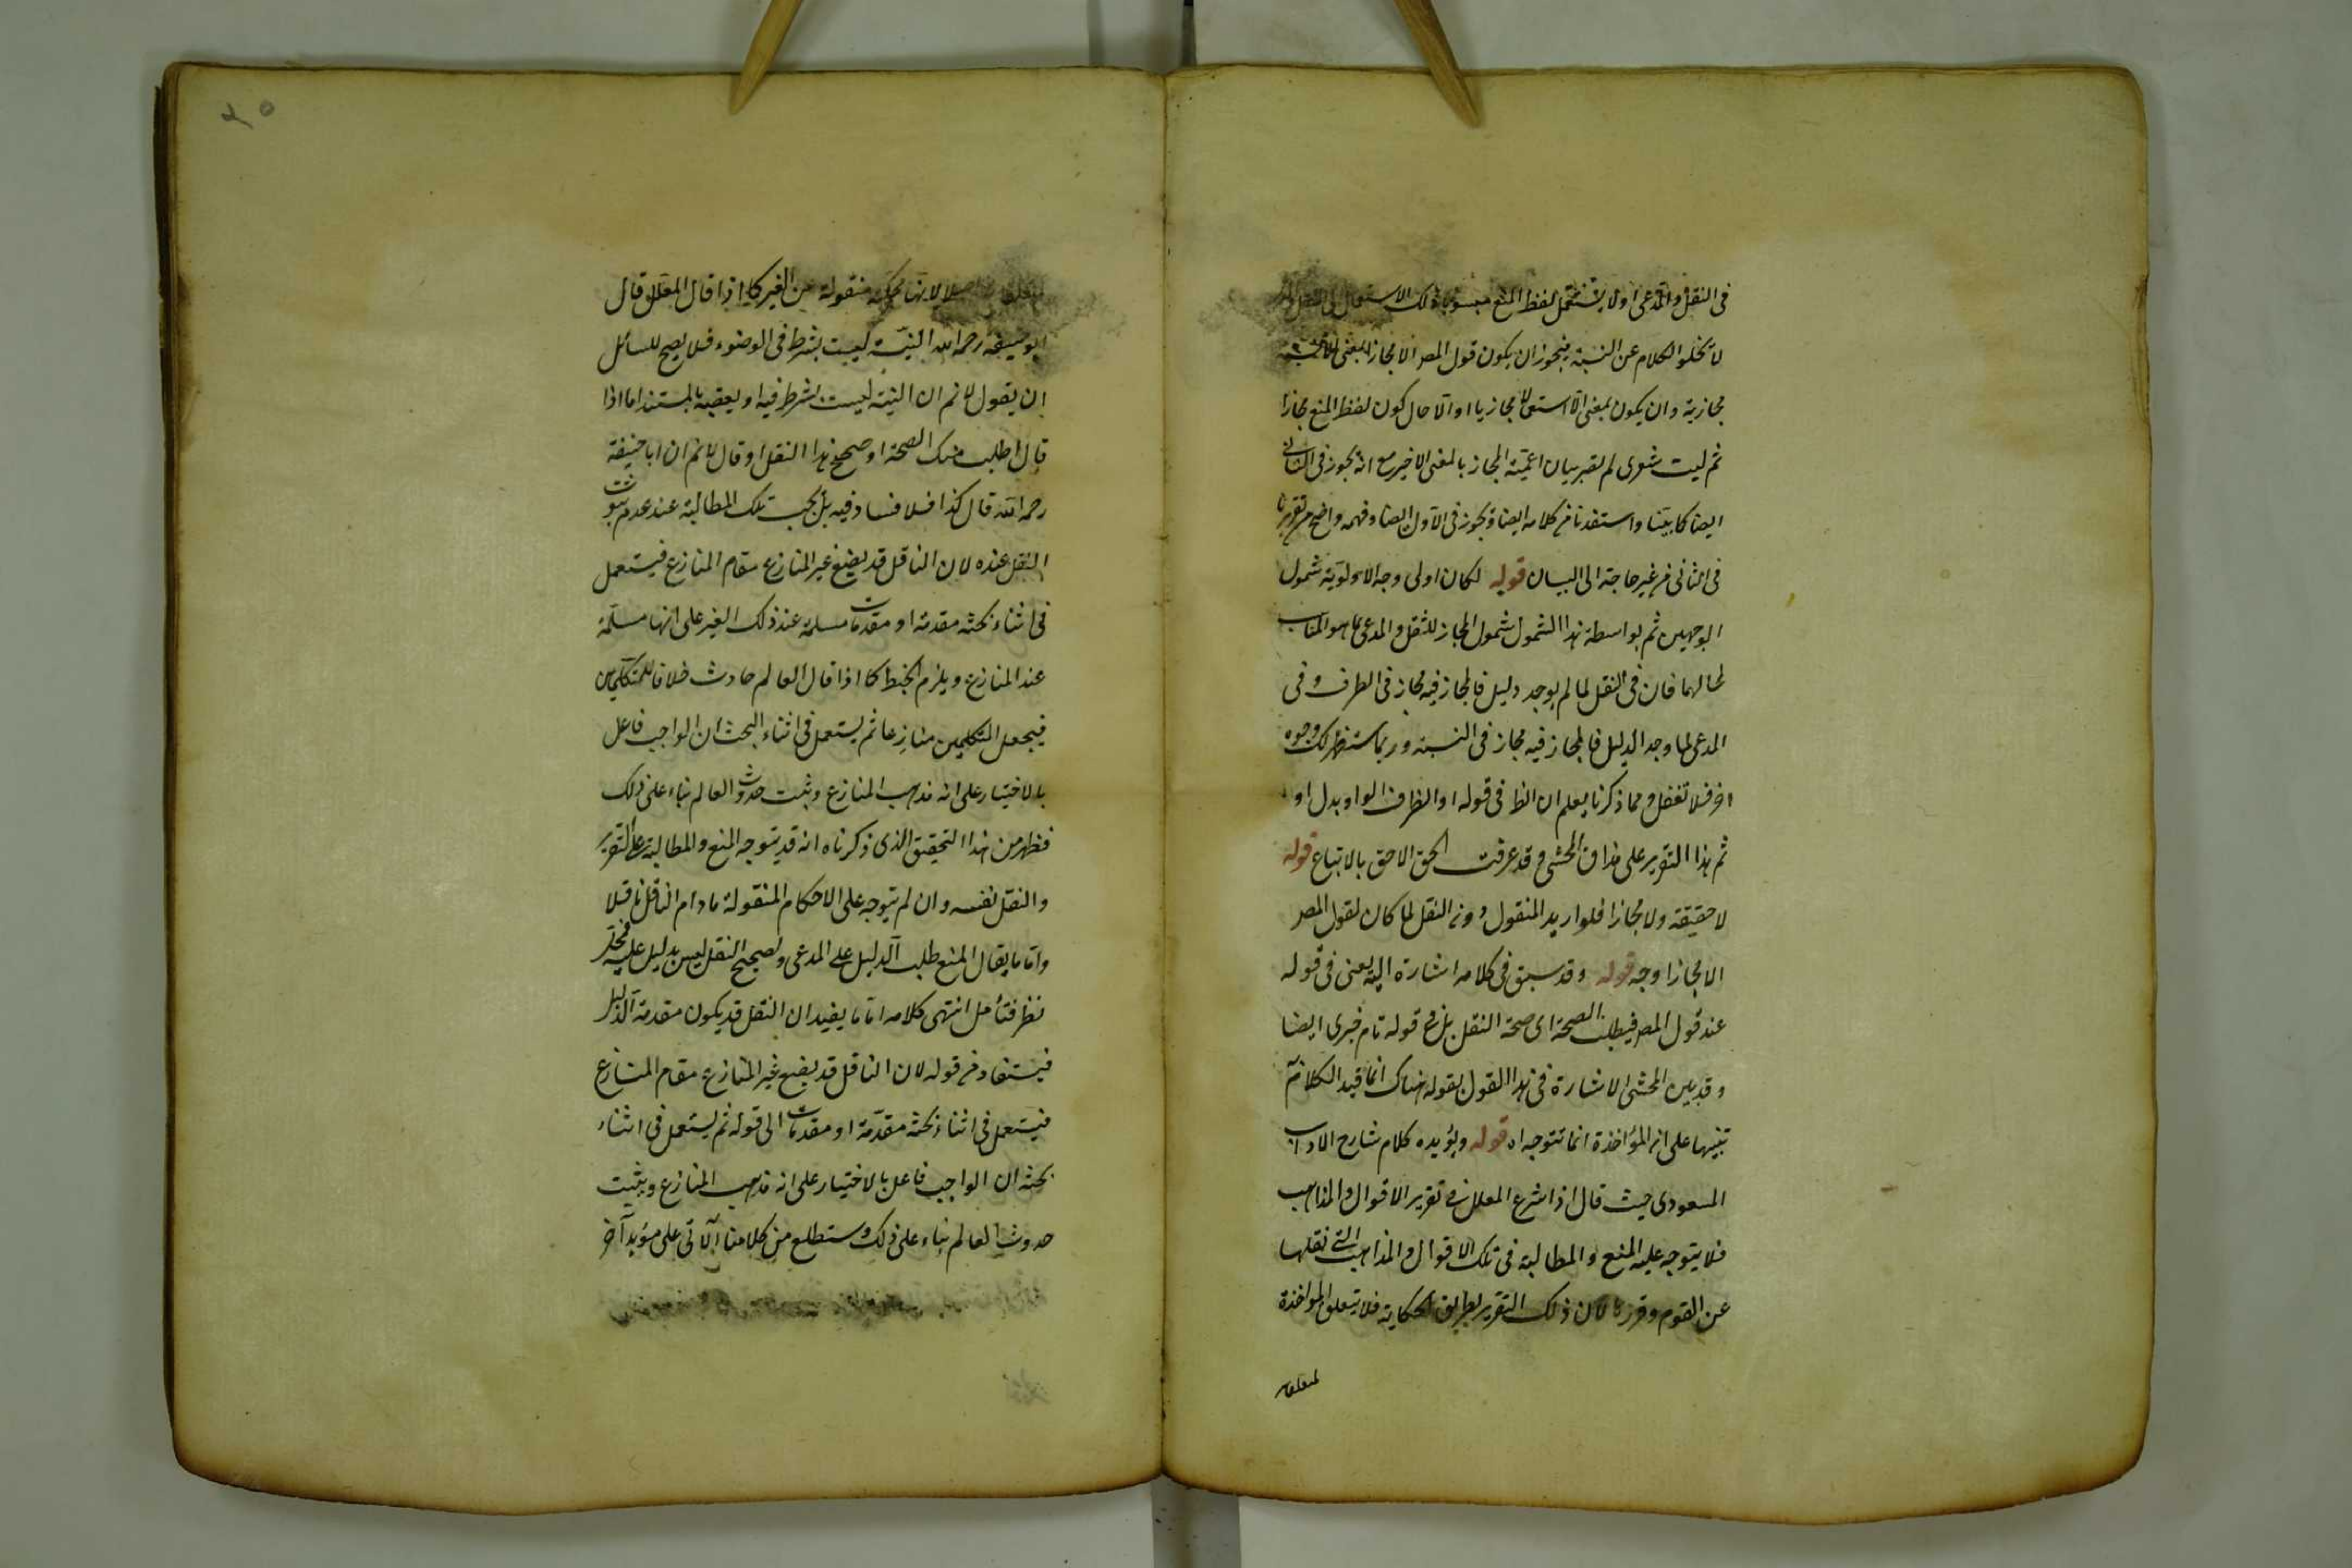 في النقل والمدعى اولا يستعمل لفظ المنع منسوبا ذلك الاستعمال الى النقل
لا يخلوا الكلام عن النسبة فيجوز ان يكون قول المصر الا مجازا بمعنى الا نسبة
مجازية وان يكون بمعنى الا استعمالا مجازيا او الا حال كون لفظ المنع مجازا
ثم ليت شعرى لم يقصر بيان اعمية المجاز بالمعنى الاخير مع انه يجوز في الثانى
ايضا كما بينا واستفدنا من كلامه ايضا ويجوز في الاول ايضا وفهمه واضح من تقريرنا
في الثانى من غير حاجة الى البيان قوله لكان اولى وجه الاولوية شمول
الوجهين ثم بواسطة هذا الشمول شمول المجاز للنقل والمدعى بما هو المناسب
لحالهما فان في النقل لما لم يوجد دليل فالمجاز فيه مجاز في الطرف وفي
المدعى لما وجد الدليل فالمجاز فيه مجاز في النسبة وربما ستظهر لك وجوه
اخر فلا تغفل ومما ذكرنا يعلم ان الظ في قوله او الظرف الواو بدل او
ثم هذا التقرير على مذاق المحشى وقد عرفت الحق الاحق بالاتباع قوله
لا حقيقة ولا مجازا فلو اريد المنقول دون النقل لما كان لقول المصر
الا مجازا وجه قوله وقد سبق في كلامه اشارة اليه يعنى في قوله
عند قول المصر فيطلب الصحة اى صحة النقل بل في قوله تام خبرى ايضا
وقد بين المحشى الاشارة في هذا القول بقوله هناك انما قيد الكلام
تنبيها على ان المؤاخذة انما تتوجه اه قوله ويؤيده كلام شارح الاداب
المسعودى حيث قال اذا شرع المعلل في تقرير الاقوال والمذاهب
فلا يتوجه عليه المنع والمطالبة في تلك الاقوال والمذاهب التى نقلها
عن القوم وقررها لان ذلك التقرير بطريق الحكاية فلا يتعلق المواخذة
اصلا لانها محكية منقولة عن الغير كما اذا قال المعلل قال
ابو حنيفة رحمه الله النية ليست بشرط في الوضوء فلا يصح للسائل
ان يقول لا نم ان النية ليست بشرط فيه او يعقبه بالمستند اما اذا
قال اطلب منك الصحة او صحح هذا النقل او قال لا نم ان ابا حنيفة
رحمه الله قال كذا فلا فساد فيه بل يجب تلك المطالبة عند عدم ثبوت
النقل عنده لان الناقل قد يضع غير المنازع مقام المنازع فيستعمل
في اثناء بحثه مقدمة او مقدمات مسلمة عند ذلك الغير على انها مسلمة
عند المنازع ويلزم الخبط كما اذا قال العالم حادث خلافا للمتكلمين
فيجعل المتكلمين منازعا ثم يستعمل في اثناء البحث ان الواجب فاعل
بالاختيار على انه مذهب المنازع ويثبت حدوث العالم بناء على ذلك
فظهر من هذا التحقيق الذى ذكرناه انه قد يتوجه المنع والمطالبة على التقرير
والنقل نفسه وان لم يتوجه على الاحكام المنقولة ما دام الناقل ناقلا
واما ما يقال المنع طلب الدليل على المدعى وتصحيح النقل ليس بدليل عليه فمحل
نظر فتأمل انتهى كلامه اما ما يفيد ان النقل قد يكون مقدمة الدليل
فيستفاد من قوله لان الناقل قد يضع غير المنازع مقام المنازع
فيستعمل في اثناء بحثه مقدمة او مقدمات الى قوله ثم يستعمل في اثناء
بحثه ان الواجب فاعل بالاختيار على انه مذهب المنازع ويثبت
حدوث العالم بناء على ذلك وستطلع من كلامنا الآتى على مؤيد آخر